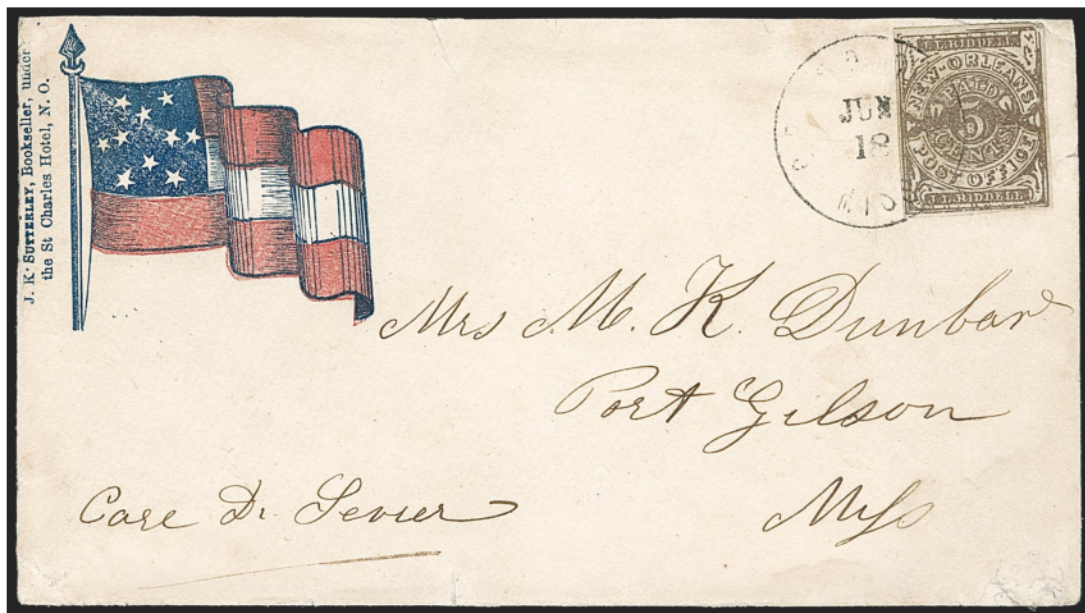 J. K. SUTTERLEY, Bookseller, under
the St Charles Hotel, N. O.
JUN
18
J.L.RIDDELL
NEW-ORLEANS
PAID
5
CENTS
POST OFFICE
J.L.RIDDELL
Mrs M. K. Dunbar
Port Gibson
Miss
Care Dr Sevier